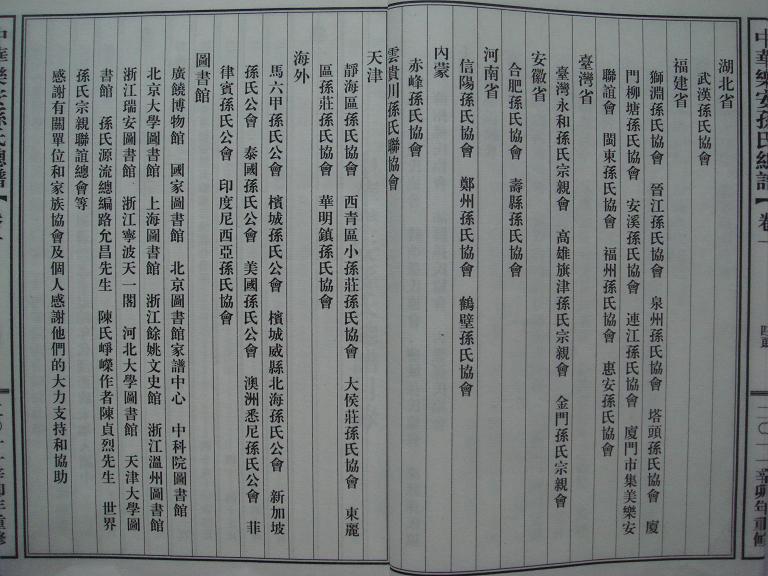 湖北省
武漢孫氏協會
福建省
獅淵孫氏協會 晉江孫氏協會 泉州孫氏協會 塔頭孫氏協會 廈
門柳塘孫氏協會 安溪孫氏協會 連江孫氏協會 廈門市集美樂安
聯誼會 閩東孫氏協會 福州孫氏協會 惠安孫氏協會
臺灣省
臺灣永和孫氏宗親會 高雄旗津孫氏宗親會 金門孫氏宗親會
安徽省
合肥孫氏協會 壽縣孫氏協會
河南省
信陽孫氏協會 鄭州孫氏協會 鶴壁孫氏協會
內蒙
赤峰孫氏協會
雲貴川孫氏聯協會
天津
靜海區孫氏協會 西青區小孫莊孫氏協會 大侯莊孫氏協會 東麗
區孫莊孫氏協會 華明鎮孫氏協會
海外
馬六甲孫氏公會 檳城孫氏公會 檳城威縣北海孫氏公會 新加坡
孫氏公會 泰國孫氏公會 美國孫氏公會 澳洲悉尼孫氏公會 菲
律賓孫氏公會 印度尼西亞孫氏協會
圖書館
廣饒博物館 國家圖書館 北京圖書館家譜中心 中科院圖書館
北京大學圖書館 上海圖書館 浙江餘姚文史館 浙江溫州圖書館
浙江瑞安圖書館 浙江寧波天一閣 河北大學圖書館 天津大學圖
書館 孫氏源流總編路允昌先生 陳氏崢嶸作者陳貞烈先生 世界
孫氏宗親聯誼總會等
感謝有關單位和家族協會及個人感謝他們的大力支持和協助
中華樂安孫氏總譜【卷一
二〇一一辛卯年重修